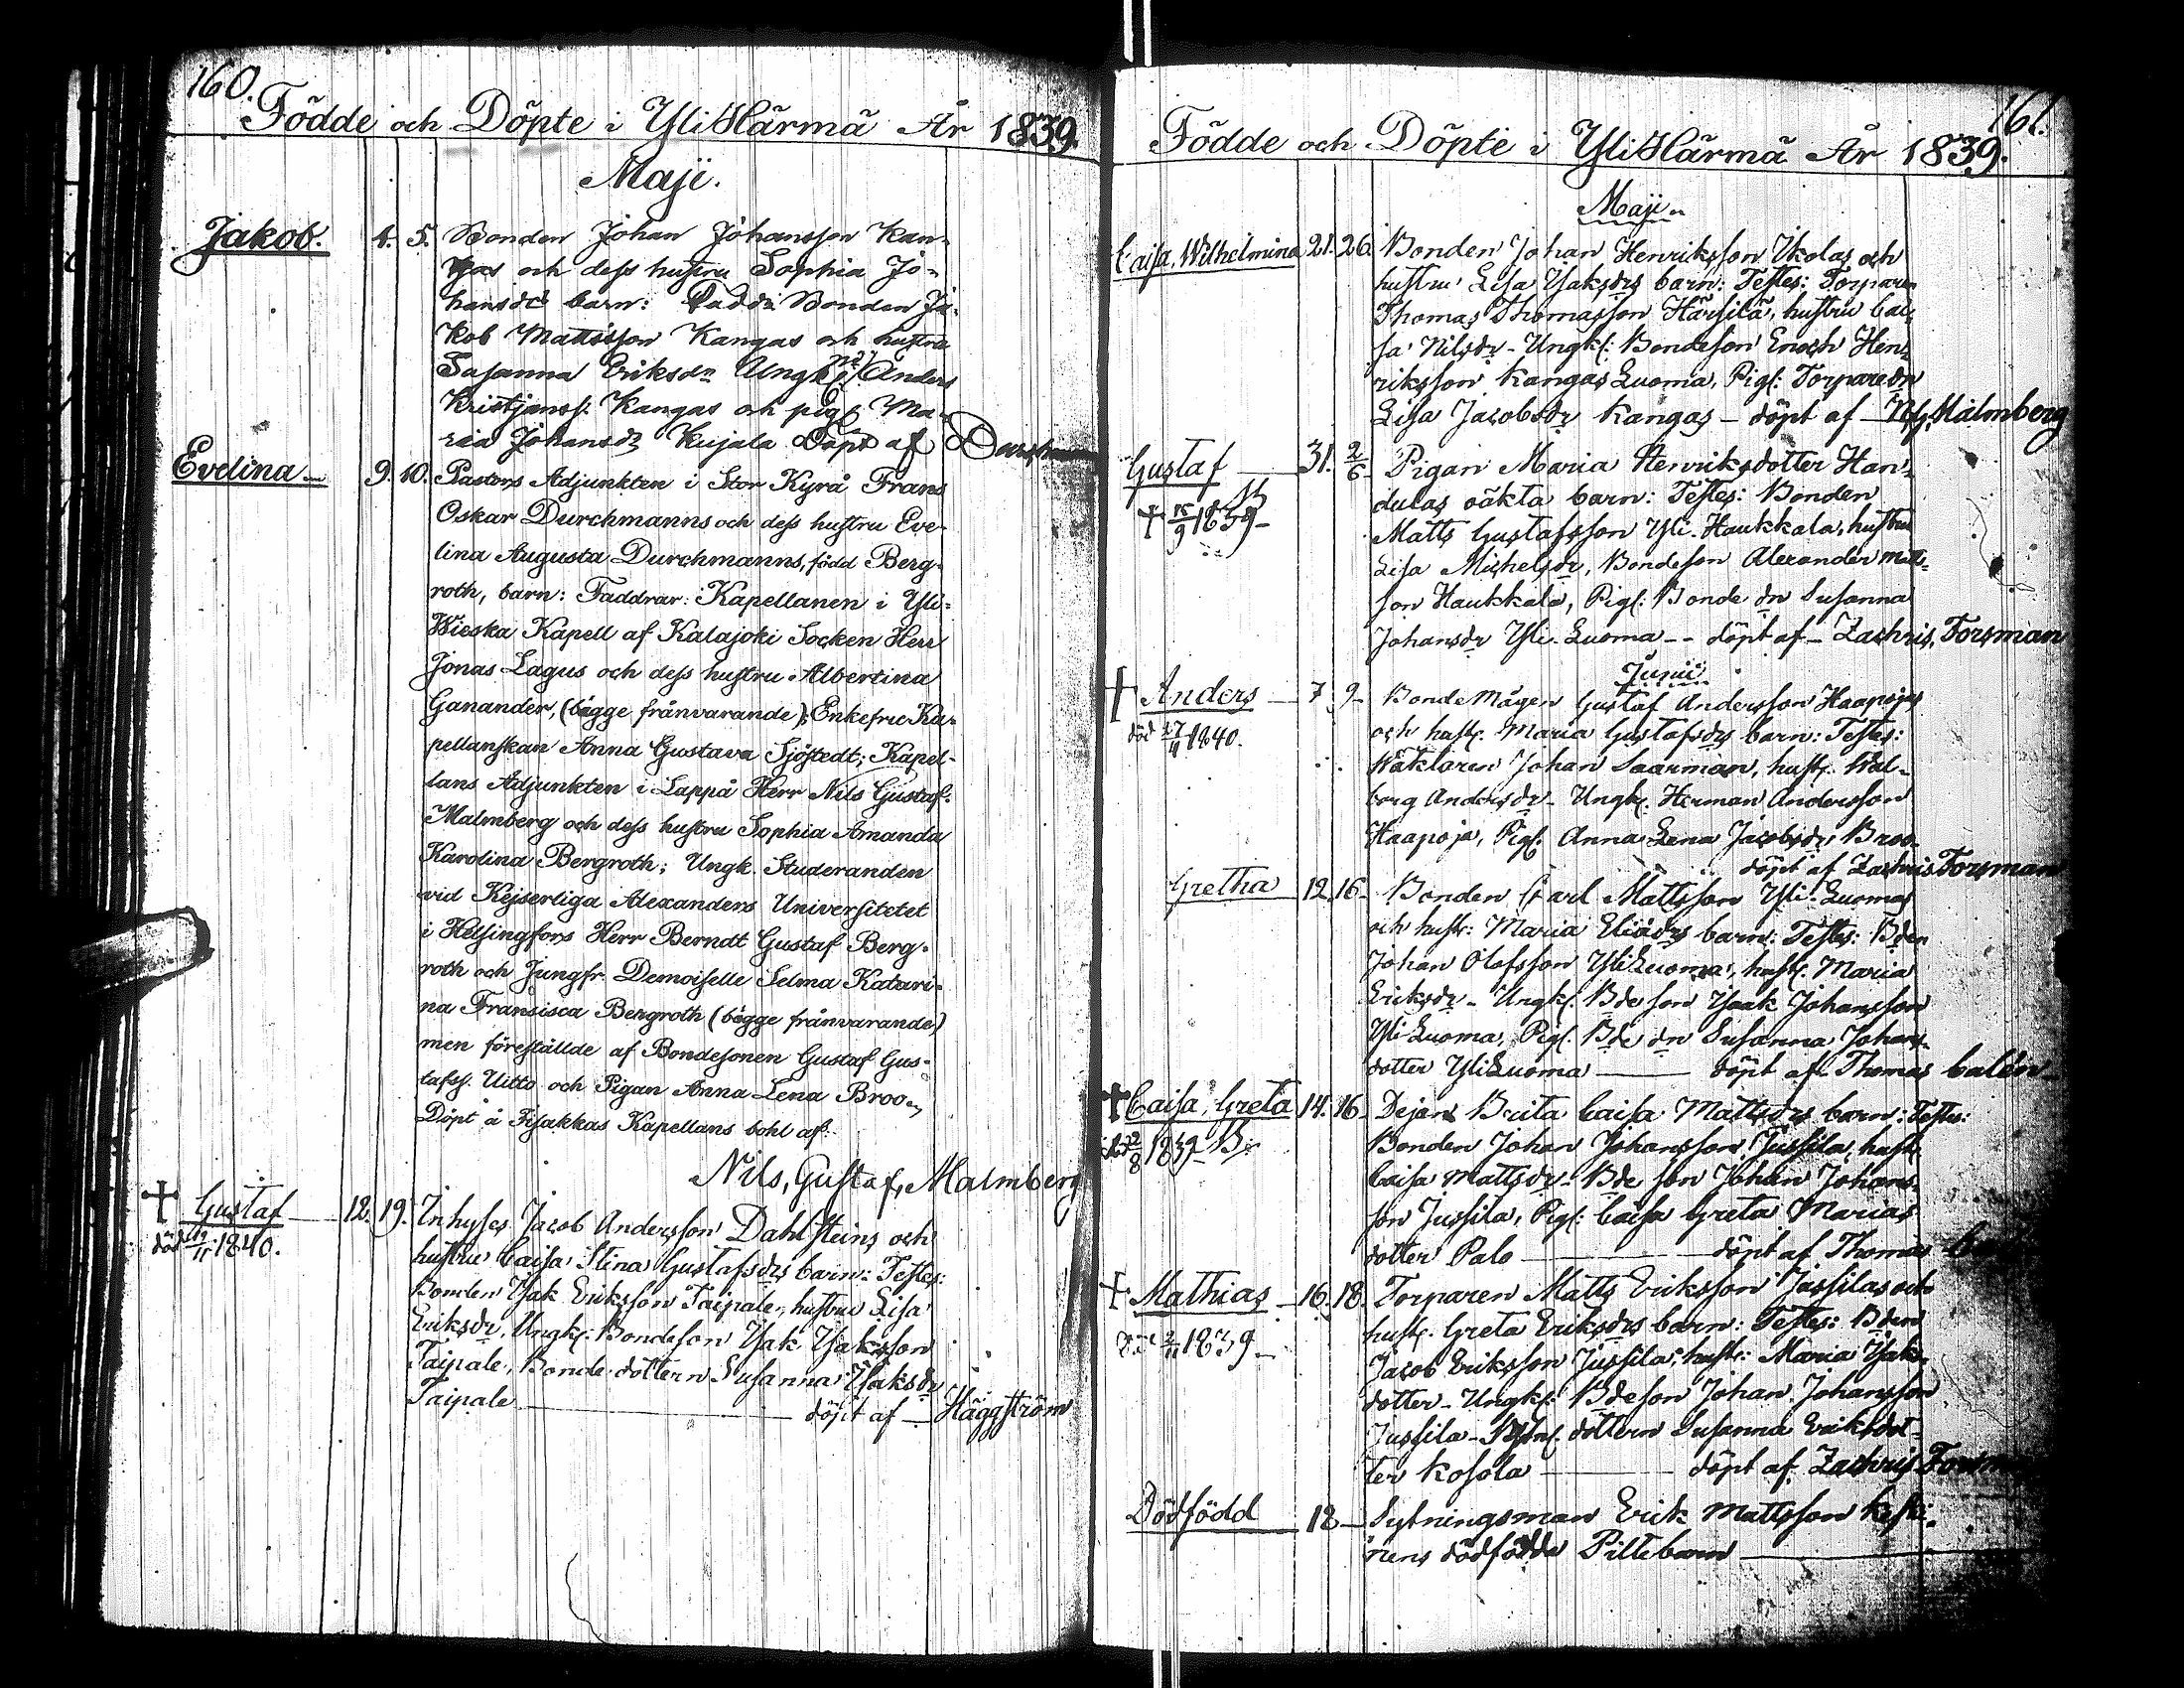 160.
Födde och Döpte i Yli Härmä År 1839.
Maji.
Jakob. 4. 5. Bonden Johan Johansson Kan-
gas och dess hustru Sophia Jo-
hansdr barn: Faddr: Bonden Ja-
kob Mattsson Kangas och hustru
Susanna Eriksdr Ungk. Anders
Kristjanss: Kangas och pig. Ma-
ria Johansdr Kujala Döpt af
Evelina 9. 10. Pastors Adjunkten i Stor Kyrå Frans
Oskar Durchmanns och dess hustru Eve-
lina Augusta Durchmanns, född Berg-
roth, barn: Faddrar: Kapellanen i Yli-
Wieska Kapell af Kalajoki Socken Herr
Jonas Lagus och dess hustru Albertina
Ganander, (bägge frånvarande); Enkefru Ka-
pellanskan Anna Gustava Sjöstedt; Kapel-
lans Adjunkten i Lappå Herr Nils Gustaf
Malmberg och dess hustru Sophia Amanda
Karolina Bergroth; Ungk. Studeranden
vid Kejserliga Alexanders Universitetet
i Helsingfors Herr Berndt Gustaf Berg-
roth och Jungfr. Demoiselle Selma Katari-
na Fransisca Bergroth (bägge frånvarande)
men föreställde af Bondesonen Gustaf Gus-
tafss. Uitto och Pigan Anna Lena Broo,
Döpt å Fisakkas Kapellans bohl af:
Nils, Gustaf, Malmberg
† Gustaf 12. 19. Inhyses Jacob Andersson Dahlsteins och
död 1840. hustru Caisa Stina Gustafsdrs barn: Testes:
Bonden Isak Eriksson Taipale, hustru Lisa
Eriksdr, Ungk: Bondeson Isak Isaksson
Taipale, Bonde dottern Susanna Isaksdr
Taipale döpt af Häggström
161.
Födde och Döpte i Yli Härmä År 1839.
Maji
Caisa, Wilhelmina 21. 26. Bonden Johan Henriksson Ikolas och
hustru Lisa Isaksdrs barn: Testes: Torparen
Thomas Thomasson Härsilä, hustru Cai-
sa Nilsdr - Ungk: Bondeson Enoch Hen-
riksson Kangas Luoma, Pig: Torparedn
Lisa Jacobsdr Kangas - döpt af - N. G. Malmberg
Gustaf 31. 2/6 Pigan Maria Henriksdotter Han-
dulas oäkta barn: Testes: Bonden
† 15/9 1839 Matts Gustafsson Yli-Haukkala, hustru
Lisa Michelsdr, Bondeson Alexander Matts-
son Haukkala, Pig: Bonde dn Susanna
Johansdr Yli-Luoma -- döpt af - Zachris, Forsman
Junii
† Anders 7 9 Bonde Mågen Gustaf Andersson Haapojas
död 1840. och hust: Maria Gustafsdrs barn: Testes:
Johan Saarman, hust: Wal-
borg Andersdr - Ungk: Herman Andersson
Haapoja, Pig: Anna Lena Jacobsdr Broo
döpt af Zachris Forsman
Gretha 12. 16. Bonden Carl Mattsson Yli-Luomas
och hust: Maria Eliädrs barn: Testes: Bden
Johan Olofsson Yli Luoma, hust: Maria
Eriksdr - Ungk: Bde son Isaak Johansson
Yli-Luoma, Pig: Bde dn Susanna Johans-
dotter Yli Luoma döpt af Thomas Calén
† Caisa, Greta 14. 16. Dejan Brita Caisa Mattsdrs barn: Testes:
1839 Bonden Johan Johansson Jussila, hust:
Caisa Mattsdr - Bde son Johan Johans-
son Jussila, Pig: Caisa Greta Marias
dotter Palo döpt af Thomas
† Mathias 16. 18. Torparen Matts Eriksson Jussilas och
1839 hust: Greta Eriksdrs barn: Testes: Bden
Jacob Eriksson Jussila, hust: Maria Isaks-
dotter - Ungk: Bdeson Johan Johansson
Jussila - dottern Susanna Eriksdot-
ter Kosola döpt af Zachris Forsman
Dödfödd 18 Sytningsman Erik Mattsson Keski-
nens dödfödde Piltebarn